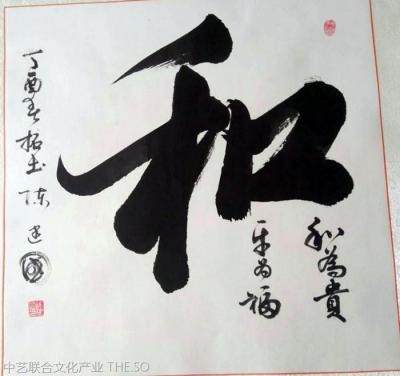 和
和為貴
平为福
丁酉春 陈
中艺联合文化产业 THE.SO